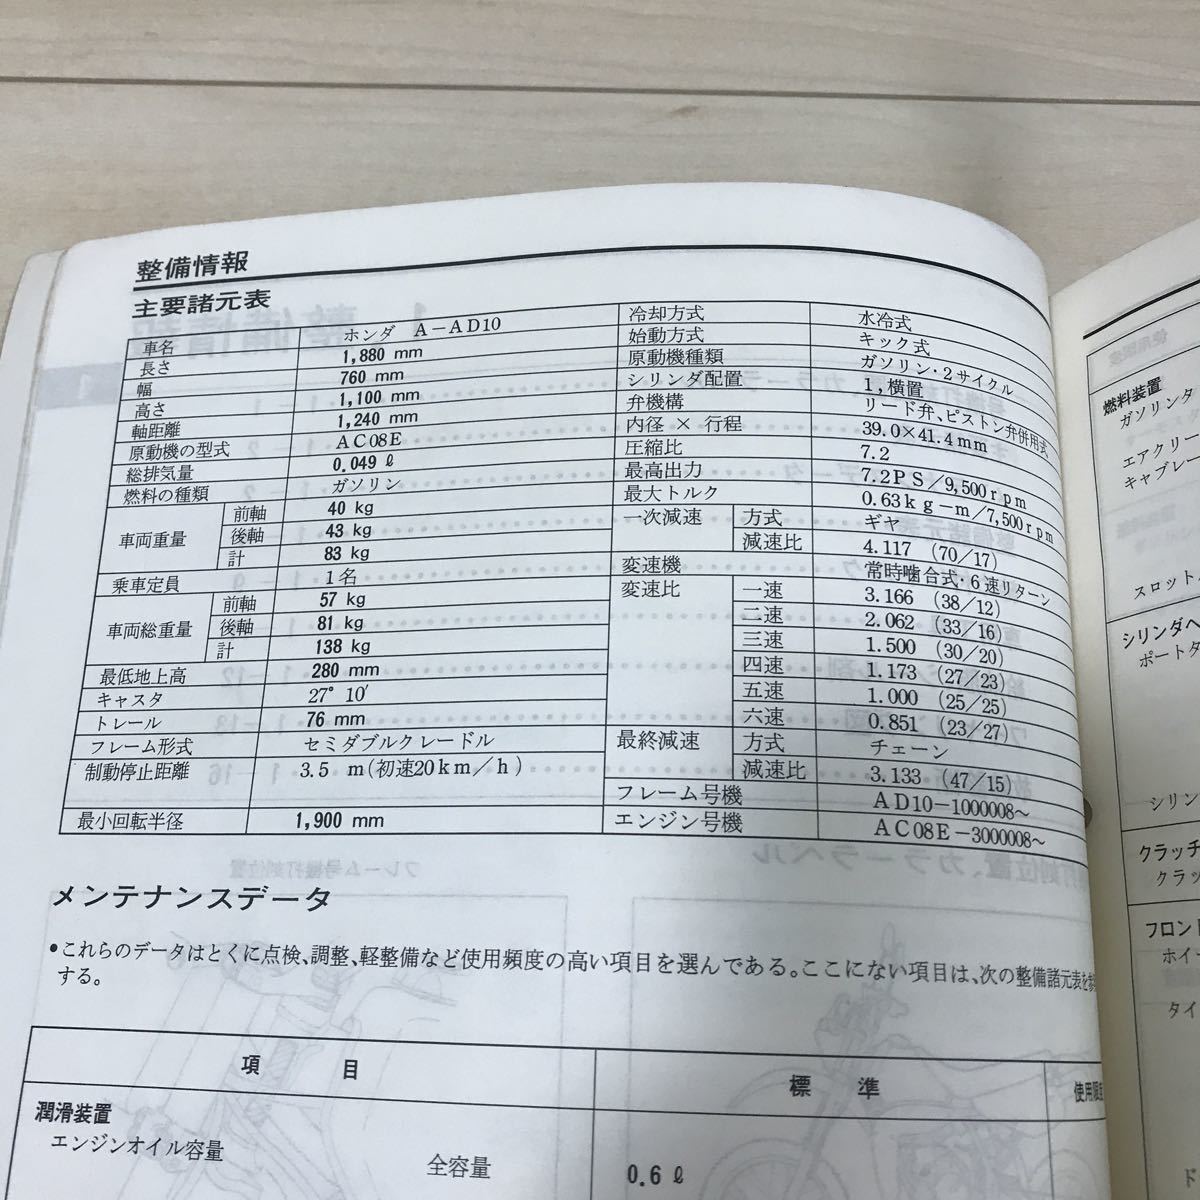 整備情報
主要諸元表
車名 ホンダ A－AD10
長さ 1,880 mm
幅 760 mm
高さ 1,100 mm
軸距離 1,240 mm
原動機の型式 AC08E
総排気量 0.049 ℓ
燃料の種類 ガソリン
車両重量 前軸 40 kg
後軸 43 kg
計 83 kg
乗車定員 1名
車両総重量 前軸 57 kg
後軸 81 kg
計 138 kg
最低地上高 280 mm
キャスタ 27° 10′
トレール 76 mm
フレーム形式 セミダブルクレードル
制動停止距離 3.5 m(初速20km／h)
最小回転半径 1,900 mm
冷却方式 水冷式
始動方式 キック式
原動機種類 ガソリン・2サイクル
シリンダ配置 1,横置
弁機構 リード弁、ピストン弁併用式
内径 × 行程 39.0×41.4mm
圧縮比 7.2
最高出力 7.2PS／9,500rpm
最大トルク 0.63kg－m／7,500rpm
一次減速 方式 ギヤ
減速比 4.117 (70／17)
変速機 常時噛合式・6速リターン
変速比 一速 3.166 (38／12)
二速 2.062 (33／16)
三速 1.500 (30／20)
四速 1.173 (27／23)
五速 1.000 (25／25)
六速 0.851 (23／27)
最終減速 方式 チェーン
減速比 3.133 (47／15)
フレーム号機 AD10－1000008～
エンジン号機 AC08E－3000008～
メンテナンスデータ
●これらのデータはとくに点検、調整、軽整備など使用頻度の高い項目を選んである。ここにない項目は、次の整備諸元表を参
する。
項 目 標 準 使用限度
潤滑装置
エンジンオイル容量 全容量 0.6 ℓ
燃料装置
ガソリンタ
エアクリー
キャブレー
スロット
シリンダヘ
ポートタ
シリン
クラッチ
クラッ
フロント
ホイー
タイ
ド